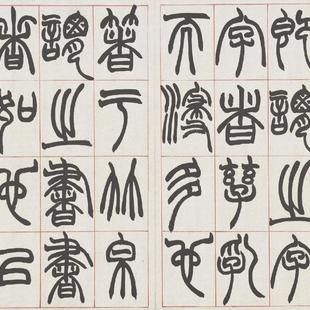 即謂之字
字者孳乳
而浸多也
箸于竹帛
謂之書書
者如也以